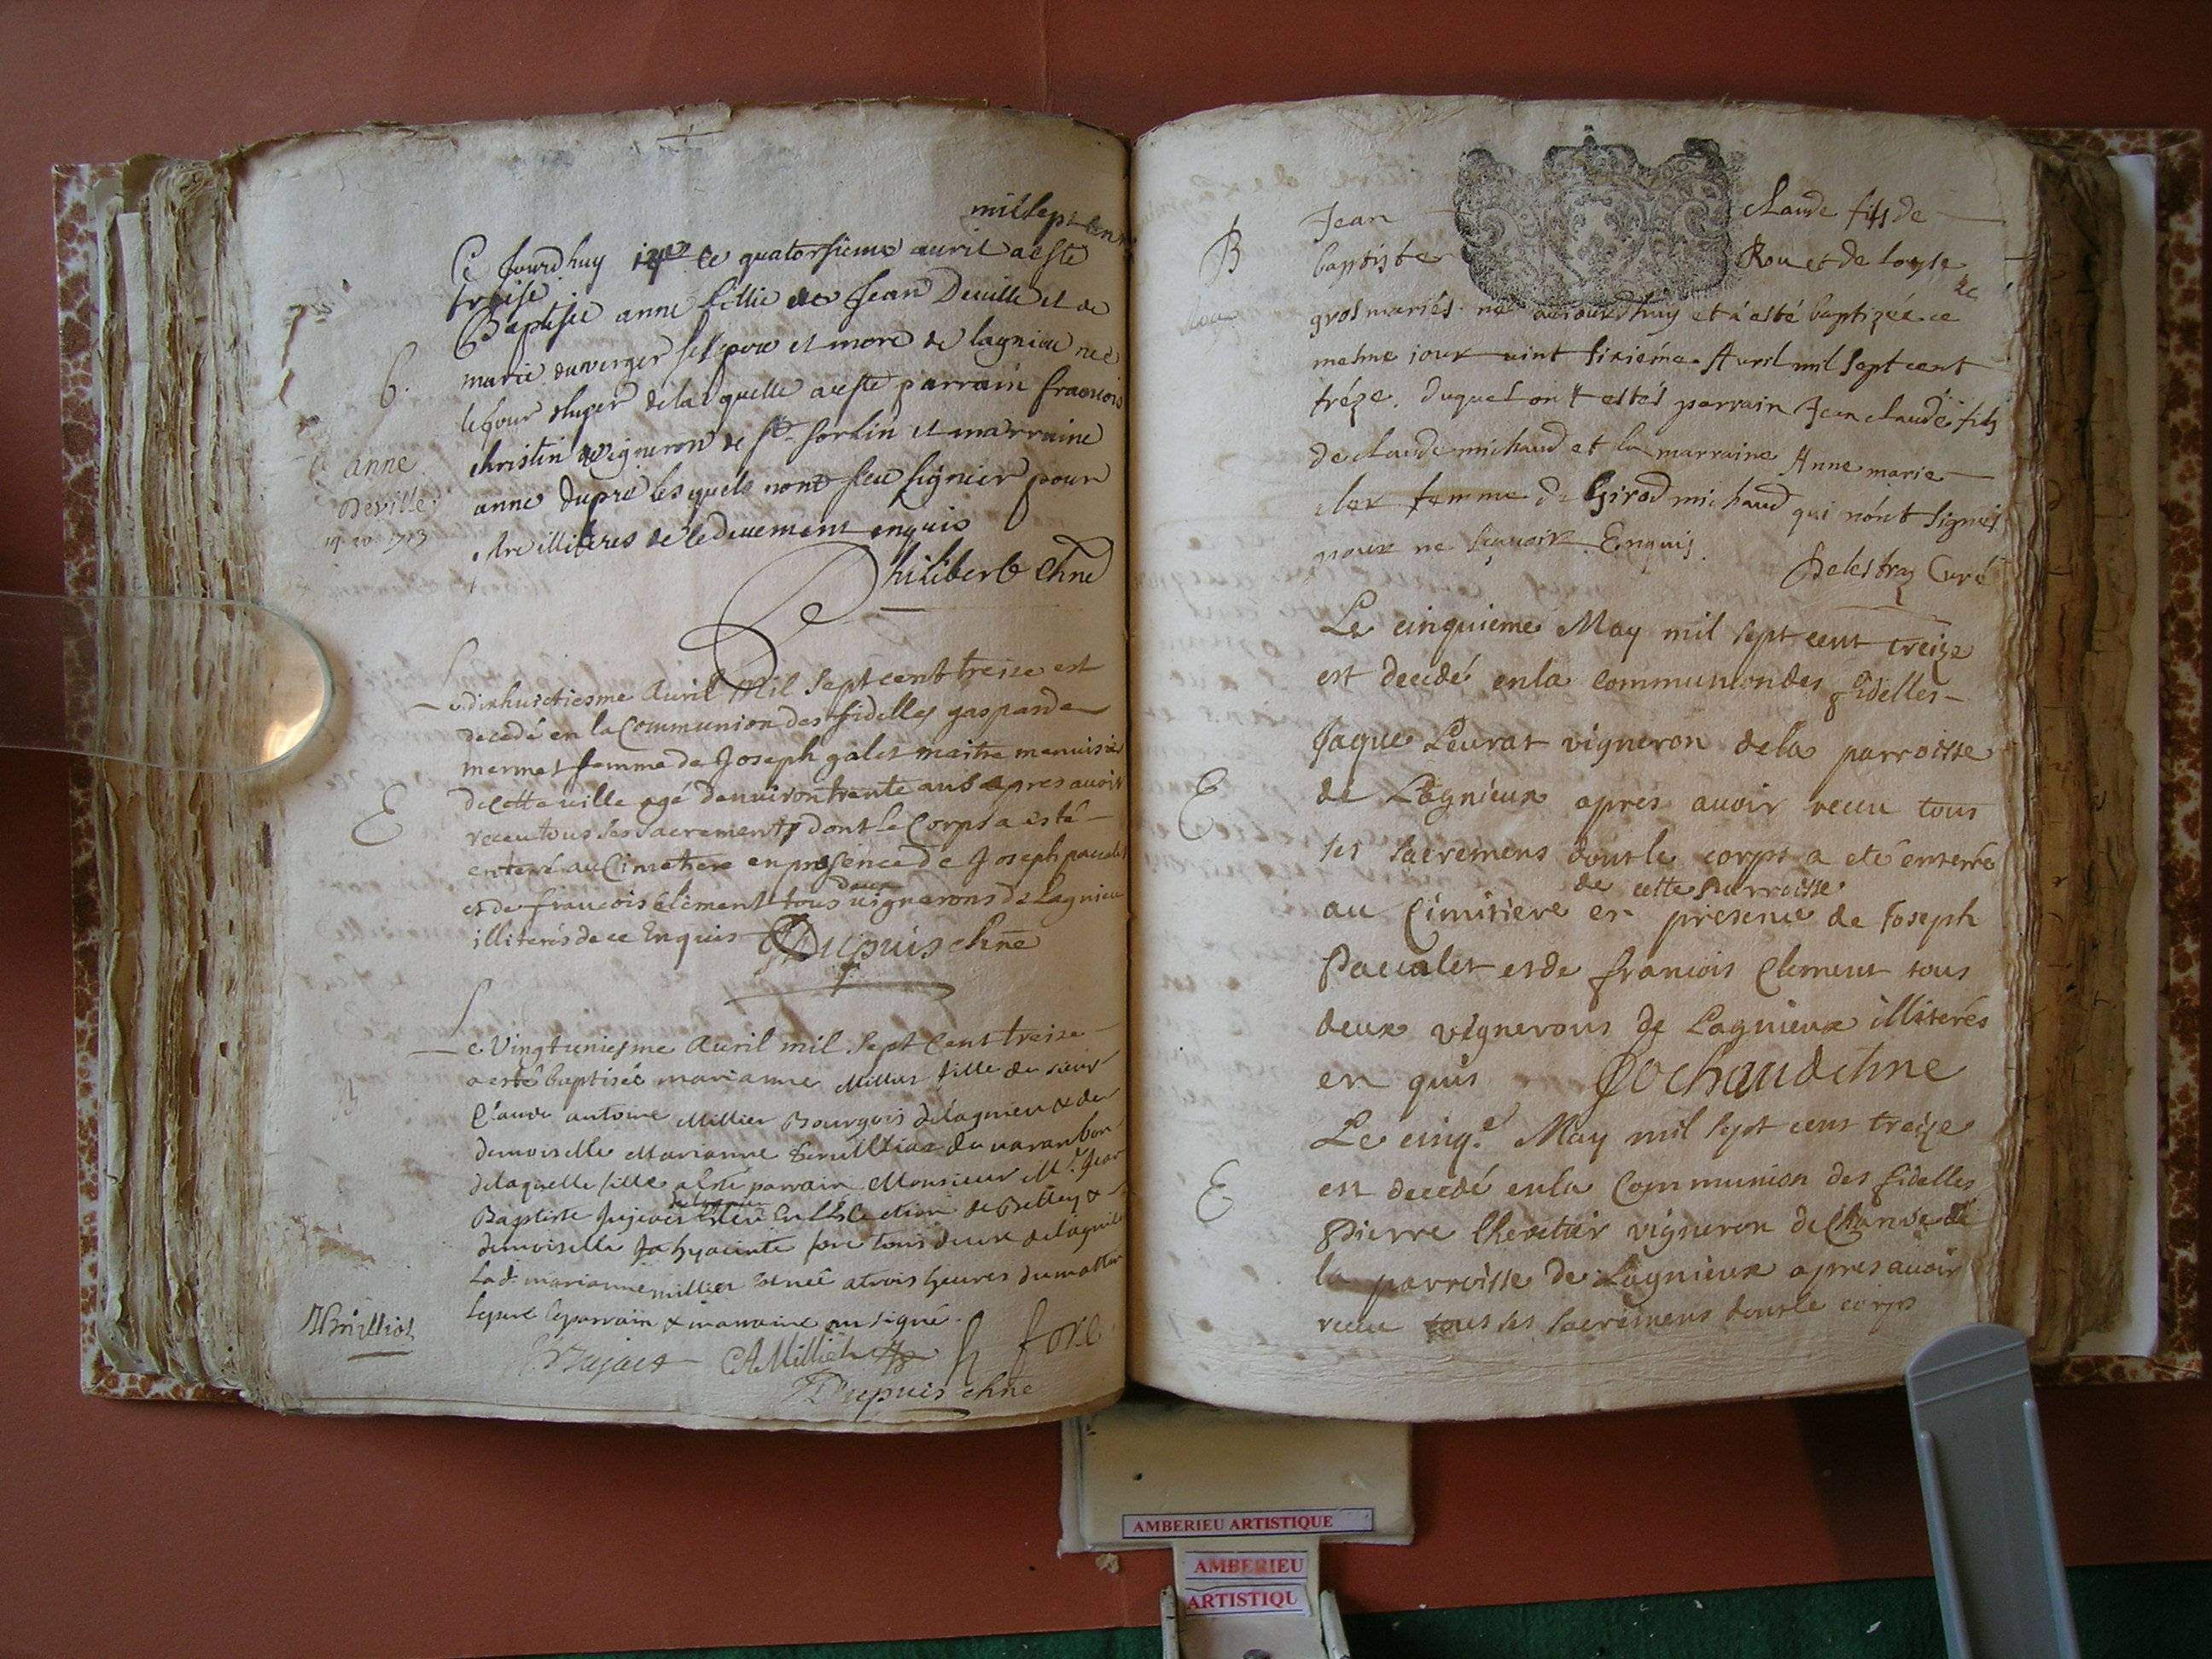 mil sept cent
Ce jourdhuy ce quatorsieme auril a este
treise
Baptisée anne fillie de Jean Deuille et de
marie duverger ses pere et mere de lagnieu née
le jour de laquelle a este parrain francois
christin vigneron de St Sorlin et marraine
anne dupré lesquels nont seu signier pour
estre illiteres de ce deuement enquis
Philibert chne
B.
anne
Deville
1713
Le dixhuictiesme Auril Mil Sept cent treize est
decedé en la Communion des fidelles gasparde
mermet femme de Joseph galet maitre menuisie
de cette ville agé denuiron trente ans apres auoir
receu tous ses sacrements dont le Corps a esté
enterré au Cimetiere en presence de Joseph paccalet
deux
et de francois Clement tous vignerons de Lagnieu
illiterés de ce Enquis Dupuis chne
E
Le Vingtuniesme Auril mil Sept Cent treize
a esté baptisée marianne Millier fille du sieur
Claude antoine Millier Bourgois de lagnieu & de
demoiselle Marianne du varanbon
de laquelle fille a esté parrain Monsieur Mr. Jean
Baptiste Jujat Esleu en L'Election de Belley &
demoiselle hyacinte fore tous deux de lagnieu
Lad. marianne millier est née a trois heures du matin
le pere le parrain & marraine ont signé.
B
Jujat CA Millier h fore
Dupuis chne
B
Jean claude fils de
baptiste Rou et de Loyse
gros mariés né aujourdhuy et a esté baptizée ce
mesme jour uint sixiéme Auril mil sept cent
tréze. duquel ont estés parrain Jean claude fils
de claude michaud et la marraine Anne marie
femme de Girod michaud qui nónt signés
pour ne sçauoir Enquis.
Delestraz Curé
Le cinquieme May mil sept cent treize
est decedé en la communion des fidelles
Jaque Leurat vigneron de la parroisse
de Lagnieux apres auoir receu tous
ses sacremens dont le corps a eté enterré
de cette Parroisse
au Cimitiere en presence de Joseph
Paccalet et de francois Clement tous
deux vignerons de Lagnieux illiterés
en quis Cochaud chne
E
Le cinq.e May mil sept cent treize
est decedé en la Communion des fidelles
Pierre Cheretier vigneron de
la parroisse de Lagnieux apres auoir
receu tous ses sacremens dont le corps
E
AMBERIEU ARTISTIQUE
AMBERIEU
ARTISTIQU